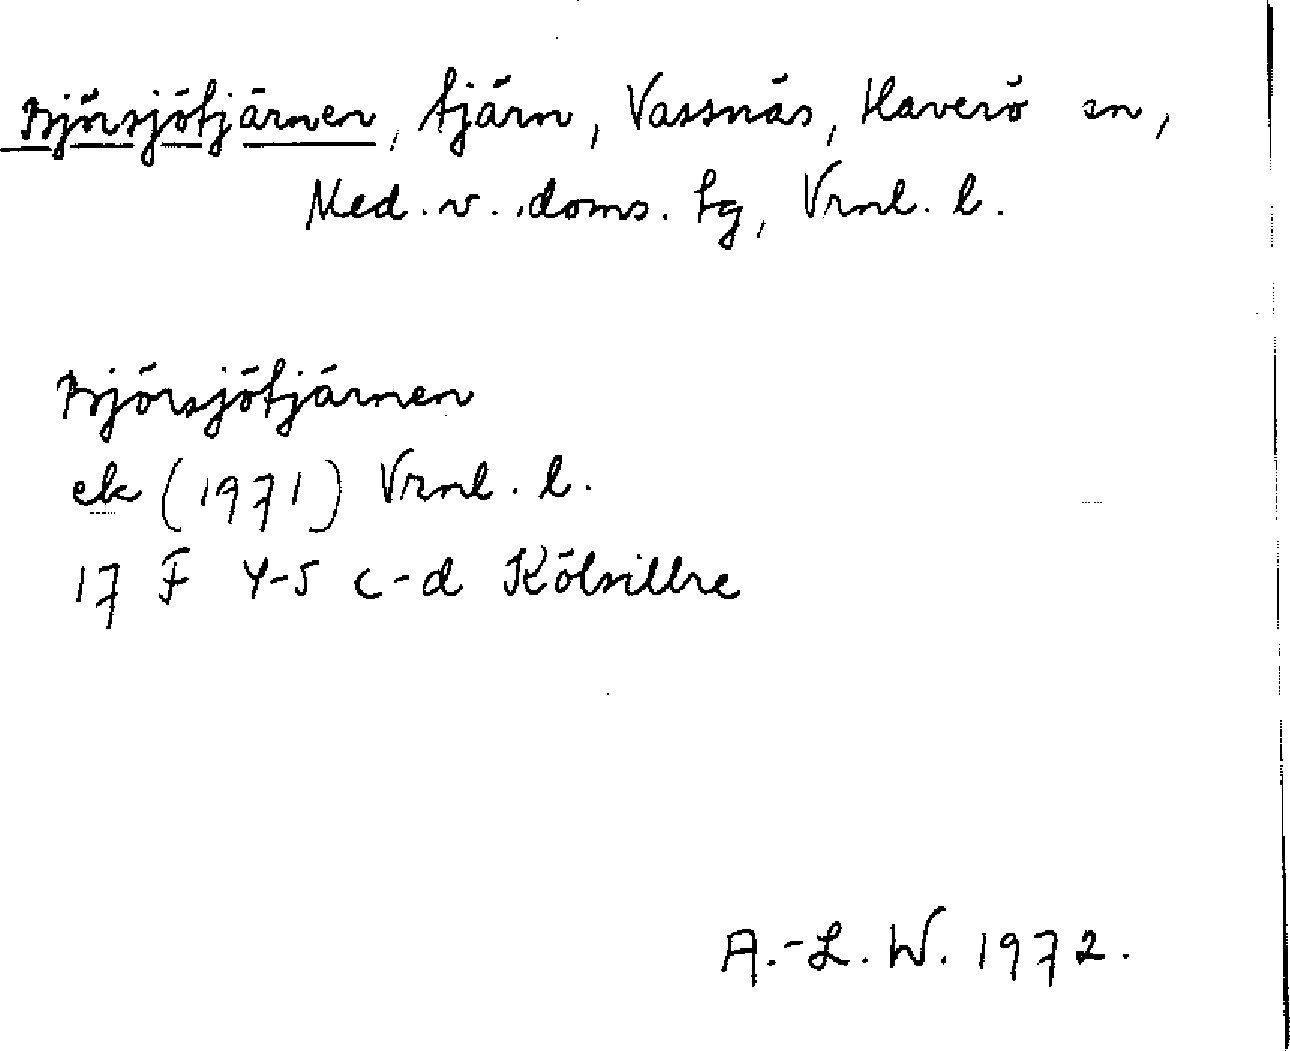 Björsjötjärnen, tjärn, Vassnäs, Haverö sn,
Med. v. doms. tg, Vrnl. l.
Björsjötjärnen
ek (1971) Vrnl. l.
17 F 4-5 c-d Kölsillre
A.-L. W. 1972.